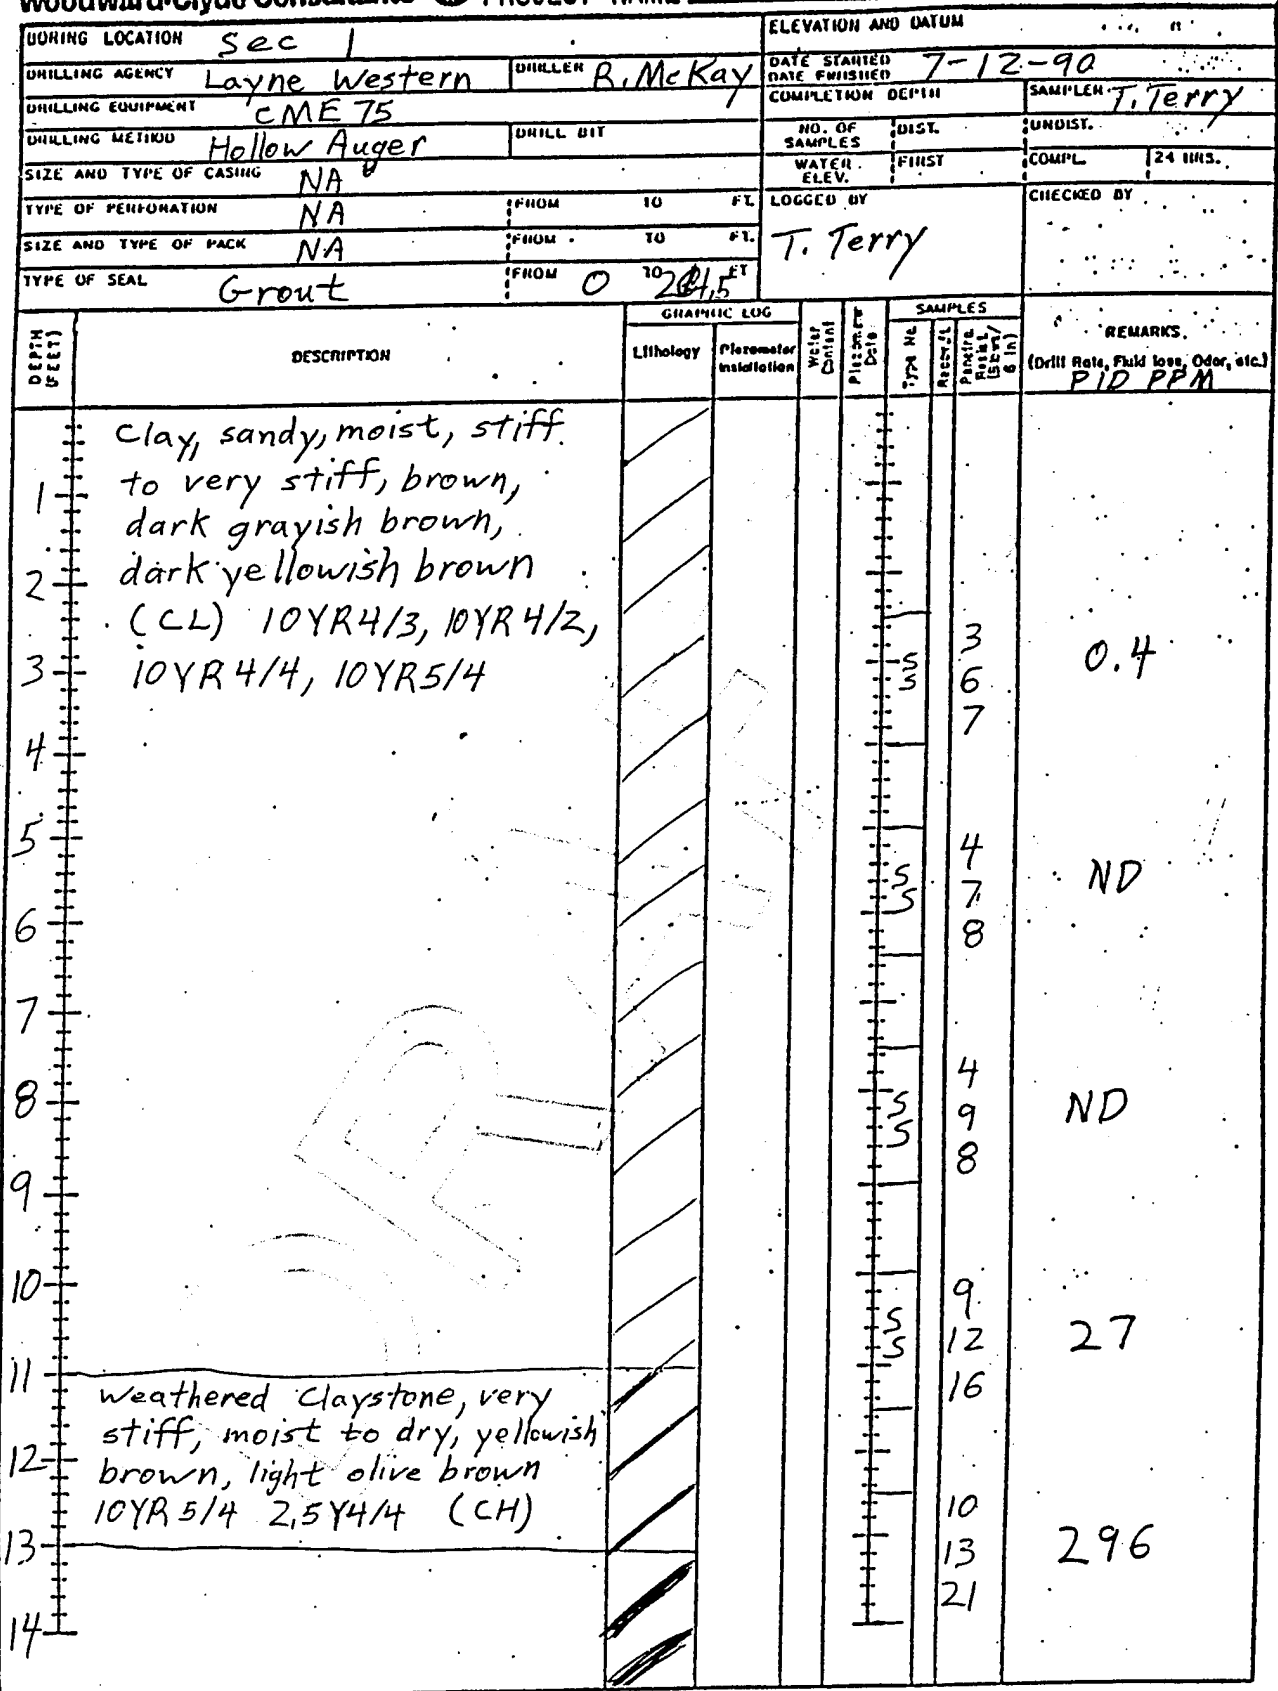 Woodward-Clyde Consultants PROJECT NAME
BORING LOCATION Sec 1
ELEVATION AND DATUM
DRILLING AGENCY Layne Western DRILLER R. McKay
DATE STARTED
DATE FINISHED 7-12-90
DRILLING EQUIPMENT CME 75
COMPLETION DEPTH SAMPLER T. Terry
DRILLING METHOD Hollow Auger DRILL BIT
NO. OF SAMPLES DIST. UNDIST.
SIZE AND TYPE OF CASING NA
WATER ELEV. FIRST COMPL. 24 HRS.
TYPE OF PERFORATION NA FROM TO FT.
LOGGED BY T. Terry
CHECKED BY
SIZE AND TYPE OF PACK NA FROM TO FT.
TYPE OF SEAL Grout FROM 0 TO FT
DEPTH (FEET)
DESCRIPTION
GRAPHIC LOG
Lithology
Piezometer Installation
Water Content
Piezometer Data
SAMPLES
Type No.
Recov. ft.
Penetra. Resist. (Blows/ 6 in)
REMARKS
(Drill Rate, Fluid loss, Odor, etc.)
PID PPM
Clay, sandy, moist, stiff
1 to very stiff, brown,
dark grayish brown,
2 dark yellowish brown
(CL) 10YR4/3, 10YR4/2,
3 10YR4/4, 10YR5/4
SS 3 6 7 0.4
4
5
SS 4 7 8 ND
6
7
8
SS 4 9 8 ND
9
10
SS 9 12 16 27
11
Weathered Claystone, very
stiff, moist to dry, yellowish
12 brown, light olive brown
10YR5/4 2,5Y4/4 (CH)
13
10 13 21 296
14